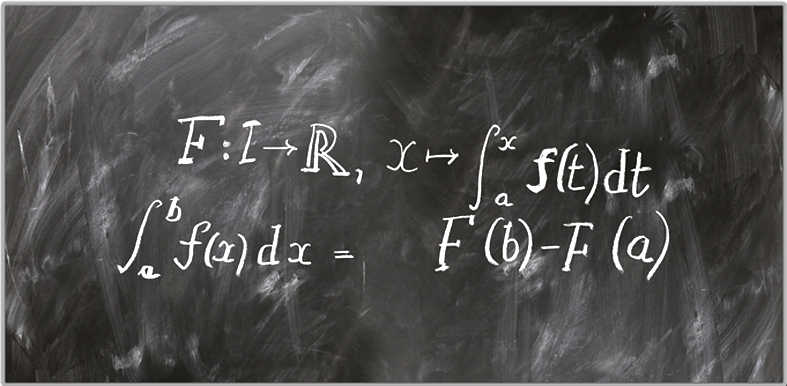 F: I → ℝ, x ↦ ∫ₐˣ f(t) dt
∫ₐᵇ f(x) dx = F(b) - F(a)